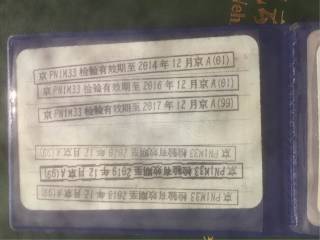 京PN1M33 检验有效期至2014年12月京A(01)
京PN1M33 检验有效期至2016年12月京A(01)
京PN1M33 检验有效期至2017年12月京A(99)
京PN1M33 检验有效期至2020年12月京A(99)
京PN1M33 检验有效期至2019年12月京A(99)
京PN1M33 检验有效期至2018年12月京A(99)